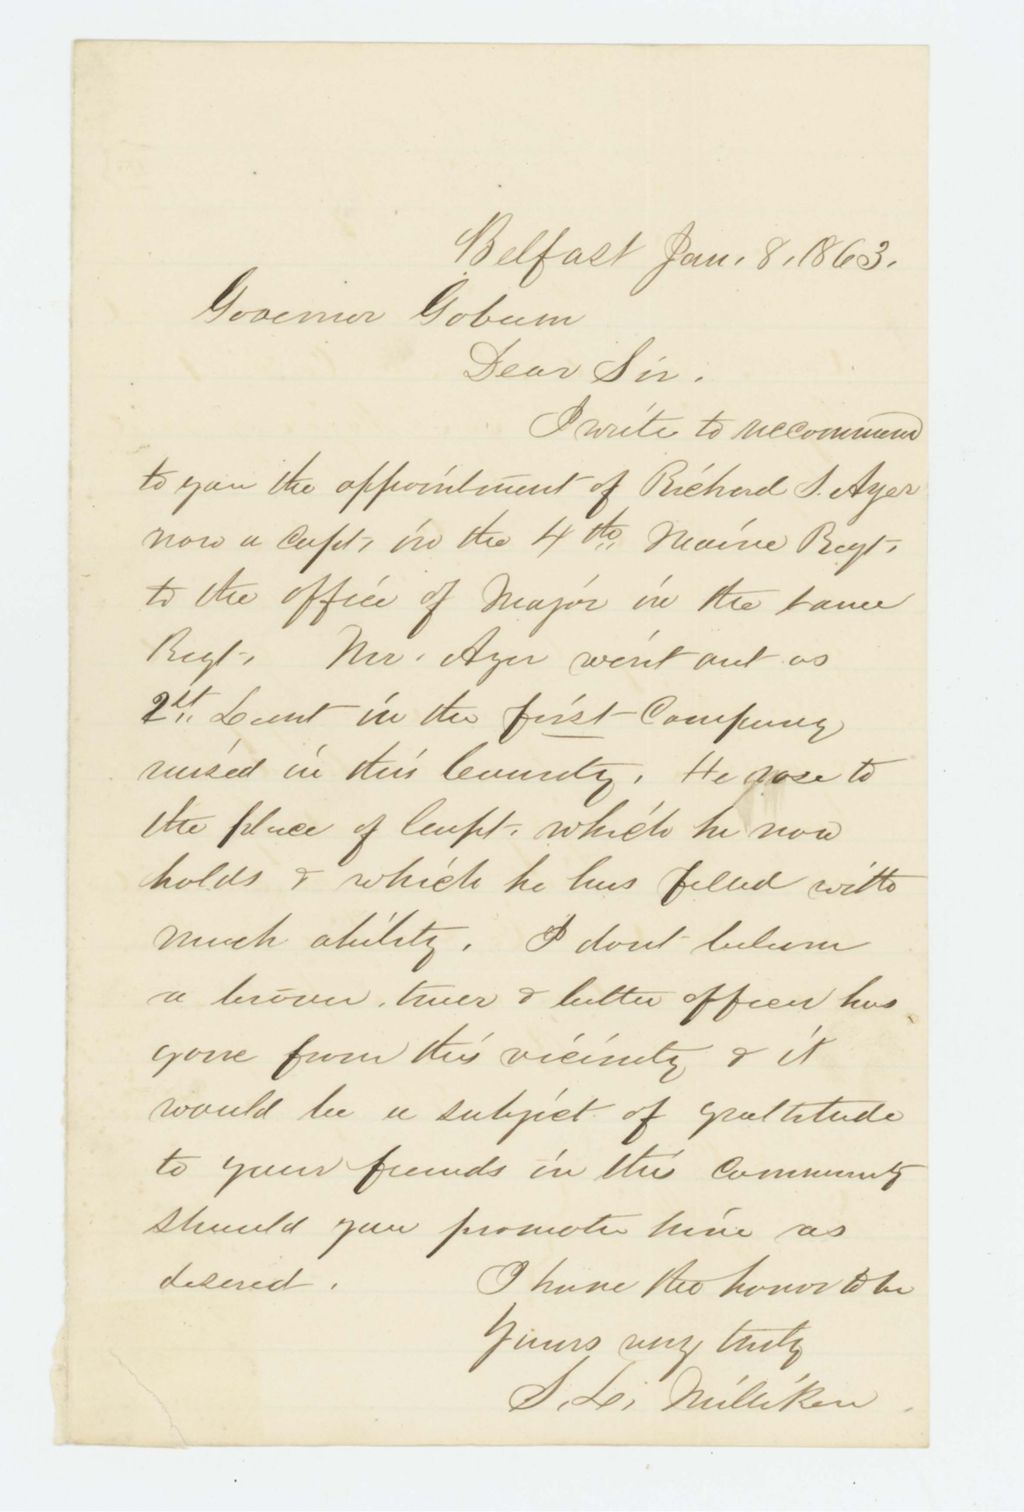 Belfast Jan. 8, 1863.
Governor Coburn
Dear Sir.
I write to recommend
to you the appointment of Richard S. Ayer
now a Capt, in the 4th Maine Regt,
to the office of Major in the same
Regt, Mr. Ayer went out as
2st Leiut in the first Company
raised in this County. He rose to
the place of Capt. which he now
holds & which he has filled with
much ability. I dont believe
a braver, truer & better officer has
gone from this vicinity & it
would be a subject of gratitude
to your friends in this community
should you promote him as
desired. I have the honor to be
Yours very truly
S. L. Milliken